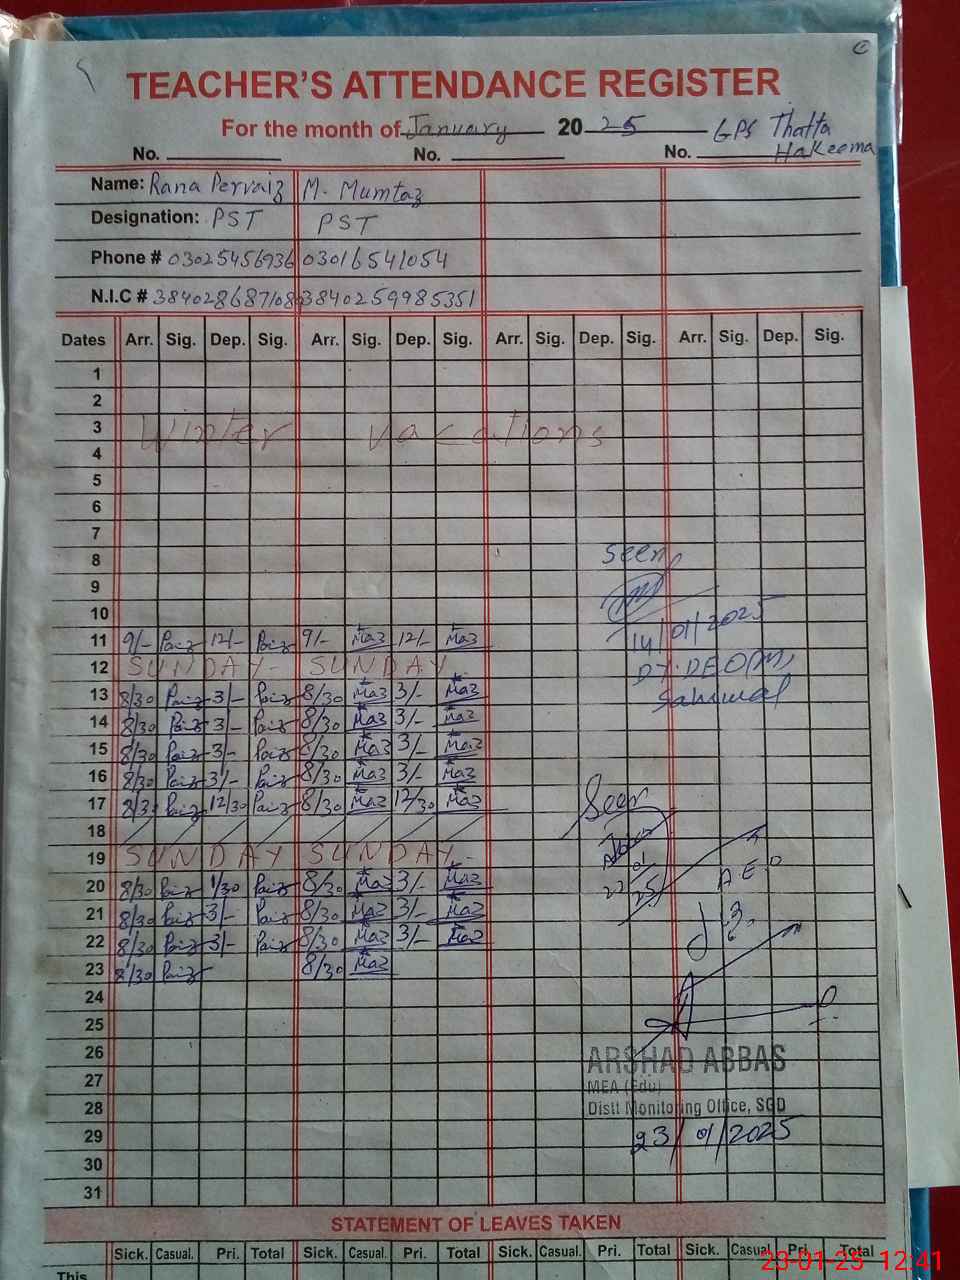 TEACHER'S ATTENDANCE REGISTER
For the month of January 2025 GPS Thatta
No. No. No. Hakeema
Name: Rana Pervaiz M. Mumtaz
Designation: PST PST
Phone # 03025456936 03016541054
N.I.C # 3840259985351
Dates Arr. Sig. Dep. Sig. Arr. Sig. Dep. Sig. Arr. Sig. Dep. Sig. Arr. Sig. Dep. Sig.
1
2
3 Winter vacations
4
5
6
7
8 Seen
9
10
14/01/2025
11 9/- 12/- 9/- Maz 12/- Maz
12 SUNDAY SUNDAY
13 8/30 3/- 8/30 Maz 3/- Maz
Sahiwal
14 8/30 3/- 8/30 Maz 3/- Maz
15 8/30 3/- 8/30 Maz 3/- Maz
16 8/30 3/- 8/30 Maz 3/- Maz
17 8/30 12/30 8/30 Maz 12/30 Maz
Seen
18
19 SUNDAY SUNDAY
20 8/30 1/30 8/30 Maz 3/- Maz
A.E.O
21 8/30 3/- 8/30 Maz 3/- Maz
22 8/30 3/- 8/30 Maz 3/- Maz
23 8/30 8/30 Maz
24
25
26 ARSHAD ABBAS
27 MEA (Edu)
28 Distt Monitoring Office, SGD
29 23/01/2025
30
31
STATEMENT OF LEAVES TAKEN
Sick. Casual. Pri. Total Sick. Casual. Pri. Total Sick. Casual. Pri. Total Sick. Casual Pri. Total
This
23-01-25 12:41